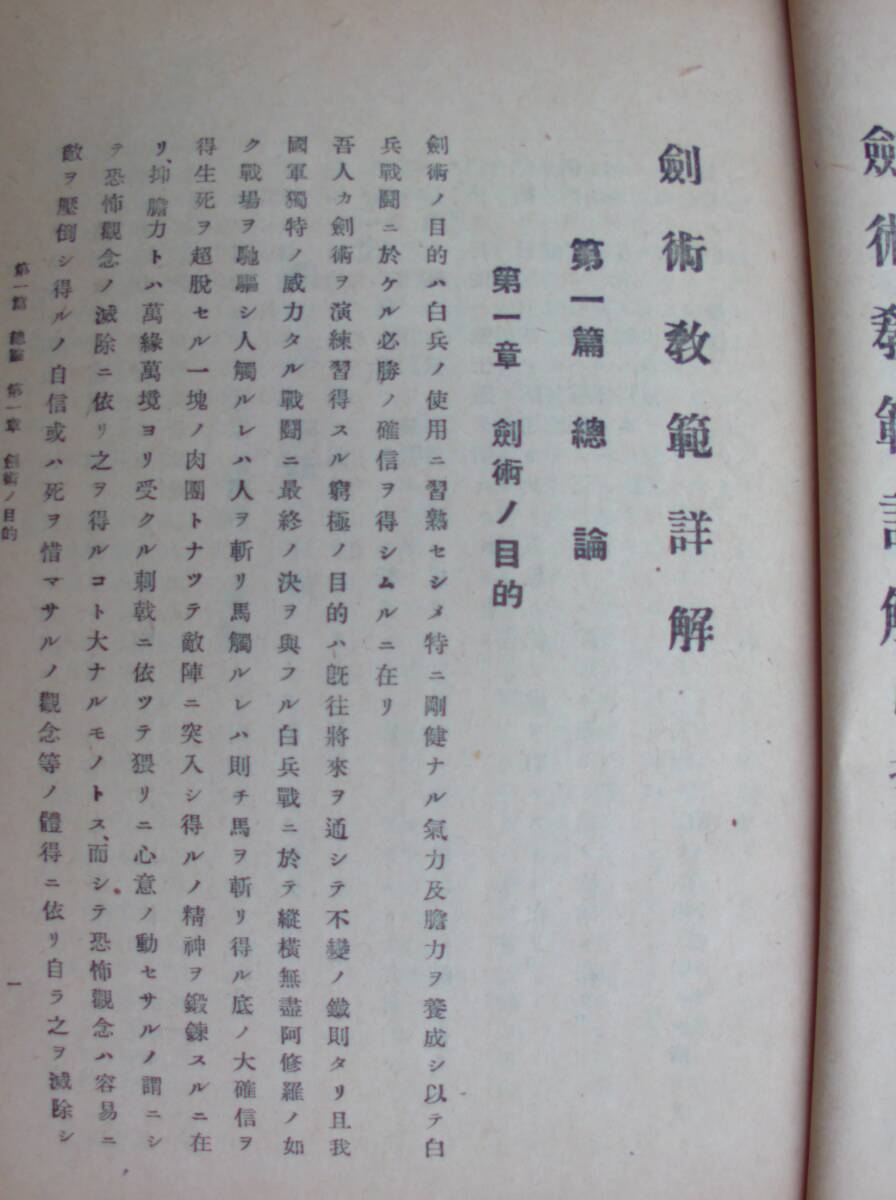 劍術敎範詳解
劍術敎範詳解
第一篇 總論
第一章 劍術ノ目的
劍術ノ目的ハ白兵ノ使用ニ習熟セシメ特ニ剛健ナル氣力及膽力ヲ養成シ以テ白
兵戰鬪ニ於ケル必勝ノ確信ヲ得シムルニ在リ
吾人カ劍術ヲ演練習得スル窮極ノ目的ハ既往將來ヲ通シテ不變ノ鐵則タリ且我
國軍獨特ノ威力タル戰鬪ニ最終ノ決ヲ與フル白兵戰ニ於テ縱橫無盡阿修羅ノ如
ク戰場ヲ馳驅シ人觸ルレハ人ヲ斬リ馬觸ルレハ則チ馬ヲ斬リ得ル底ノ大確信ヲ
得生死ヲ超脫セル一塊ノ肉團トナツテ敵陣ニ突入シ得ルノ精神ヲ鍛鍊スルニ在
リ、抑膽力トハ萬緣萬境ヨリ受クル刺戟ニ依ツテ猥リニ心意ノ動セサルノ謂ニシ
テ恐怖觀念ノ滅除ニ依リ之ヲ得ルコト大ナルモノトス、而シテ恐怖觀念ハ容易ニ
敵ヲ壓倒シ得ルノ自信或ハ死ヲ惜マサルノ觀念等ノ體得ニ依リ自ラ之ヲ滅除シ
第一篇 總論 第一章 劍術ノ目的
一